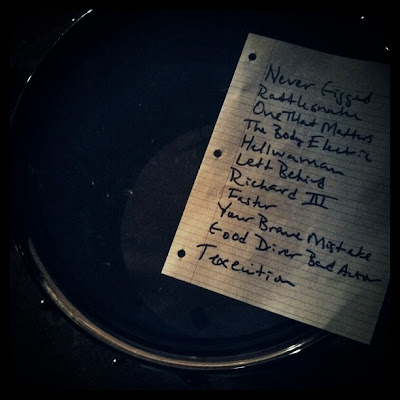 Never Egged
Rattlesnake
One That Matters
The Body Electric
Hellwaman
Left Behind
Richard III
Faster
Your Brave Mistake
Good Diver Bad